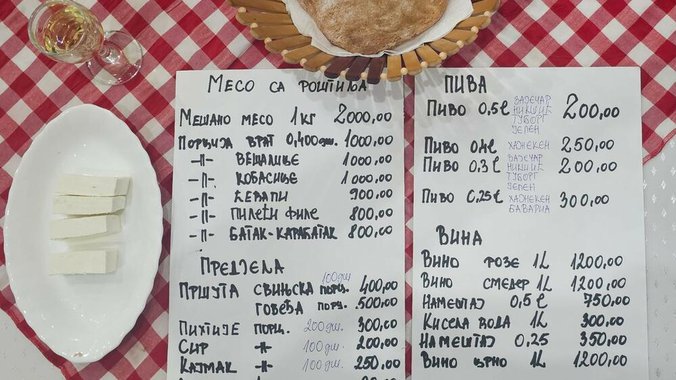 Месо са роштиља
Мешано месо 1 кг 2000,00
Порција врат 0,400 gm. 1000,00
-||- вешалице 1000,00
-||- кобасице 1000,00
-||- ћевапи 900,00
-||- пилећи филе 800,00
-||- батак-карабатак 800,00
Предјела
100 gm
Пршута свињска порц. 400,00
говеђа порц. 500,00
Пихтије порц. 200 gm. 300,00
Сир -||- 100 gm. 200,00
Кајмак -||- 100 gm. 250,00
Пива
Пиво 0,5 l Зајечар Никшић Туборг Јелен 200,00
Пиво 0,4 l Хајнекен 250,00
Пиво 0,3 l Зајечар Никшић Туборг Јелен 200,00
Пиво 0,25 l Хајнекен Бавариа 300,00
Вина
Вино розе 1L 1200,00
Вино смедер 1L 1200,00
Намештај 0,5 l 750,00
Кисела вода 1L 300,00
Намештај 0,25 350,00
Вино врно 1L 1200,00